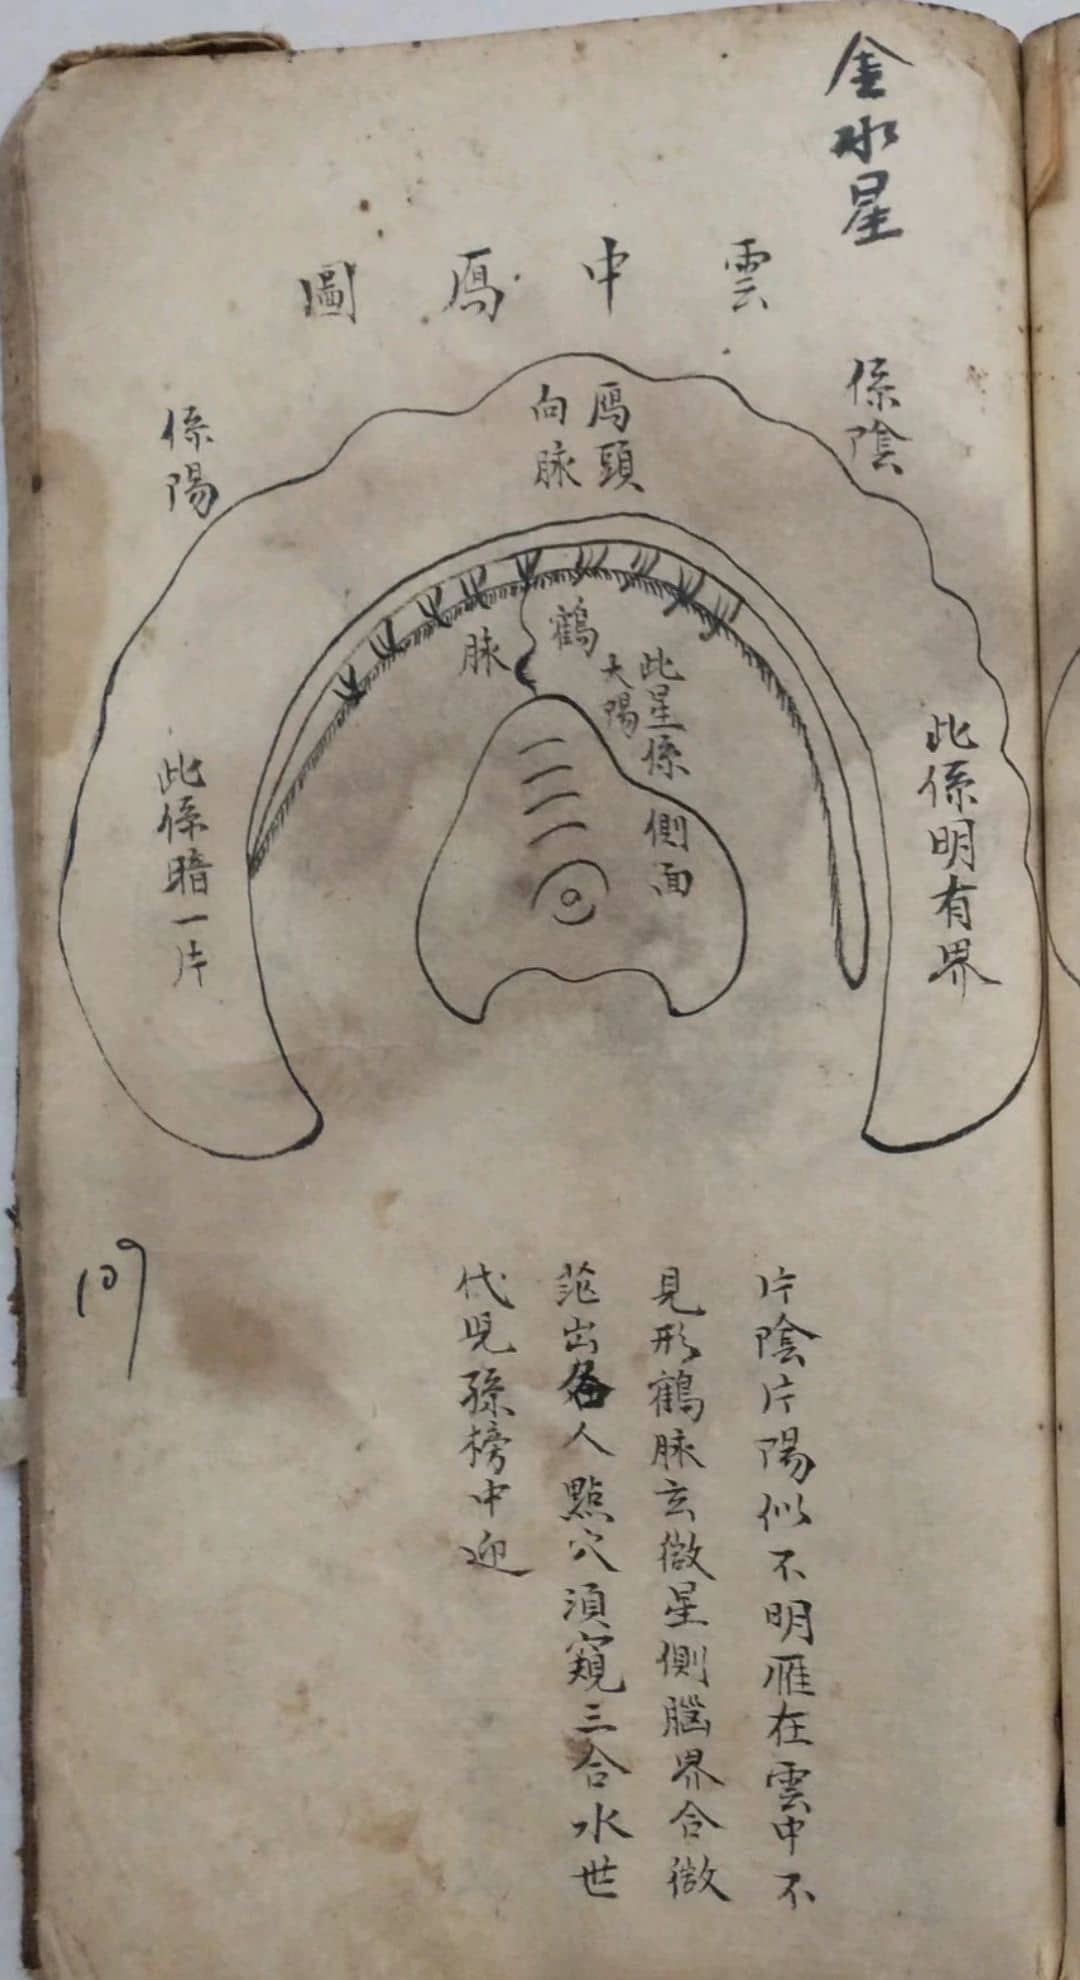 金水星
雲中鴈圖
係陰
係陽
鴈頭
向脉
鶴
脉
此星係側面
太陽
此係明有界
此係暗一片
片陰片陽似不明雁在雲中不
見形鶴脉玄微星側腦界合微
茫出名人點穴須窺三合水世
代児孫榜中迎
109